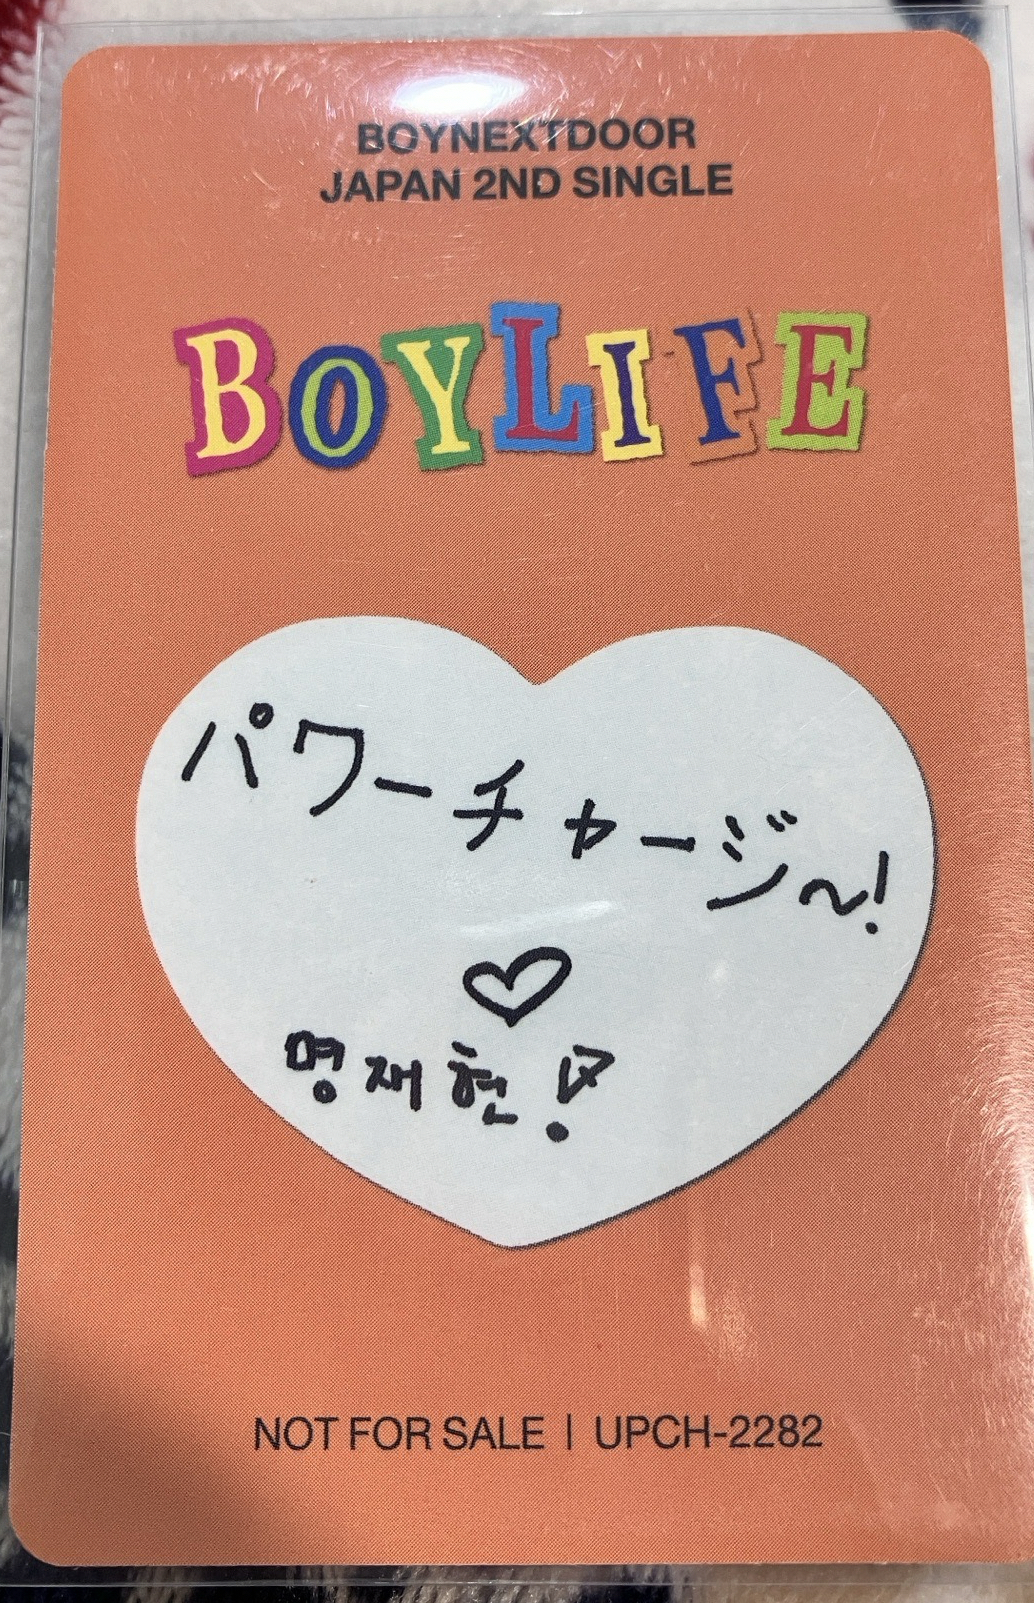 BOYNEXTDOOR
JAPAN 2ND SINGLE
BOYLIFE
パワーチャージ～!
♡
명재현!
NOT FOR SALE | UPCH-2282